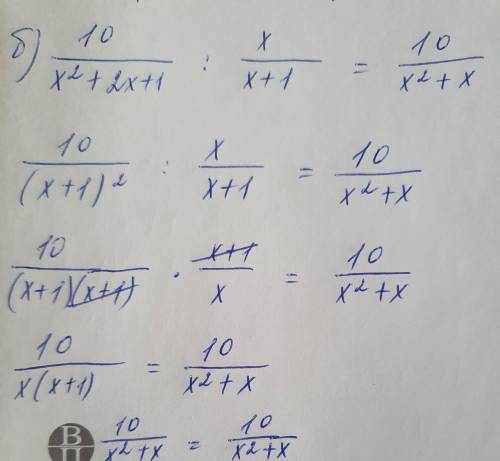 б) 10/(x²+2x+1) : x/(x+1) = 10/(x²+x)
10/(x+1)² : x/(x+1) = 10/(x²+x)
10/((x+1)(x+1)) · (x+1)/x = 10/(x²+x)
10/(x(x+1)) = 10/(x²+x)
10/(x²+x) = 10/(x²+x)